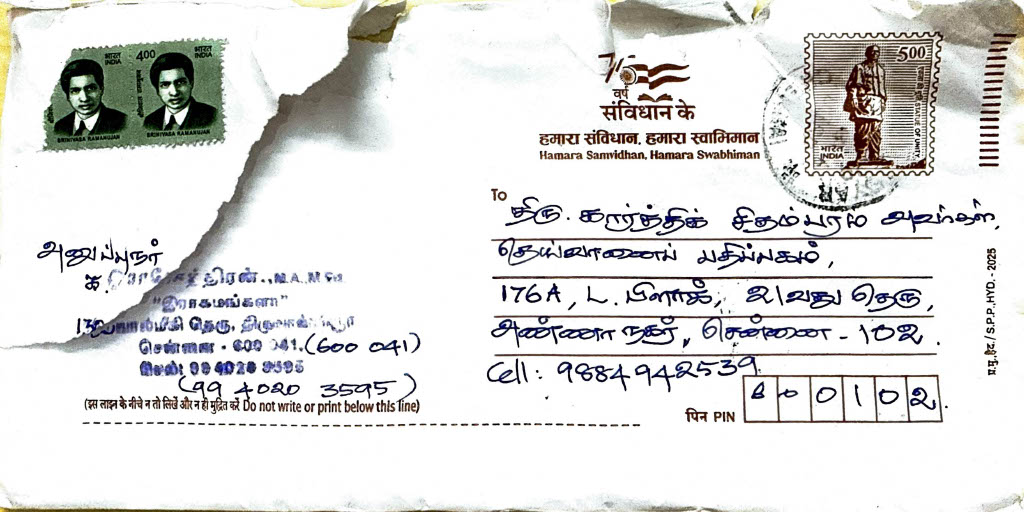 भारत INDIA
4.00
भारत INDIA
SRINIVASA RAMANUJAN
SRINIVASA RAMANUJAN
वर्ष
संविधान के
हमारा संविधान, हमारा स्वाभिमान
Hamara Samvidhan, Hamara Swabhiman
5.00
STATUE OF UNITY
भारत
INDIA
To
திரு. கார்த்திக் சிதம்பரம் அவர்கள்,
தெய்வானைப் பதிப்பகம்,
176A, L. பிளாக், 21வது தெரு,
அண்ணா நகர், சென்னை - 102.
Cell: 9884942539.
पिन PIN
600102
அனுப்புநர்
க. திரன்., M.A., M
"இராகமங்களா"
வால்மீகி தெரு, திருவான்மியூர
சென்னை - 600 041. (600 041)
செல்: 99 4020 3595
(99 4020 3595)
(इस लाइन के नीचे न तो लिखें और न ही मुद्रित करें Do not write or print below this line)
प्र.मु.,हैद./ S.P.P., HYD. - 2025